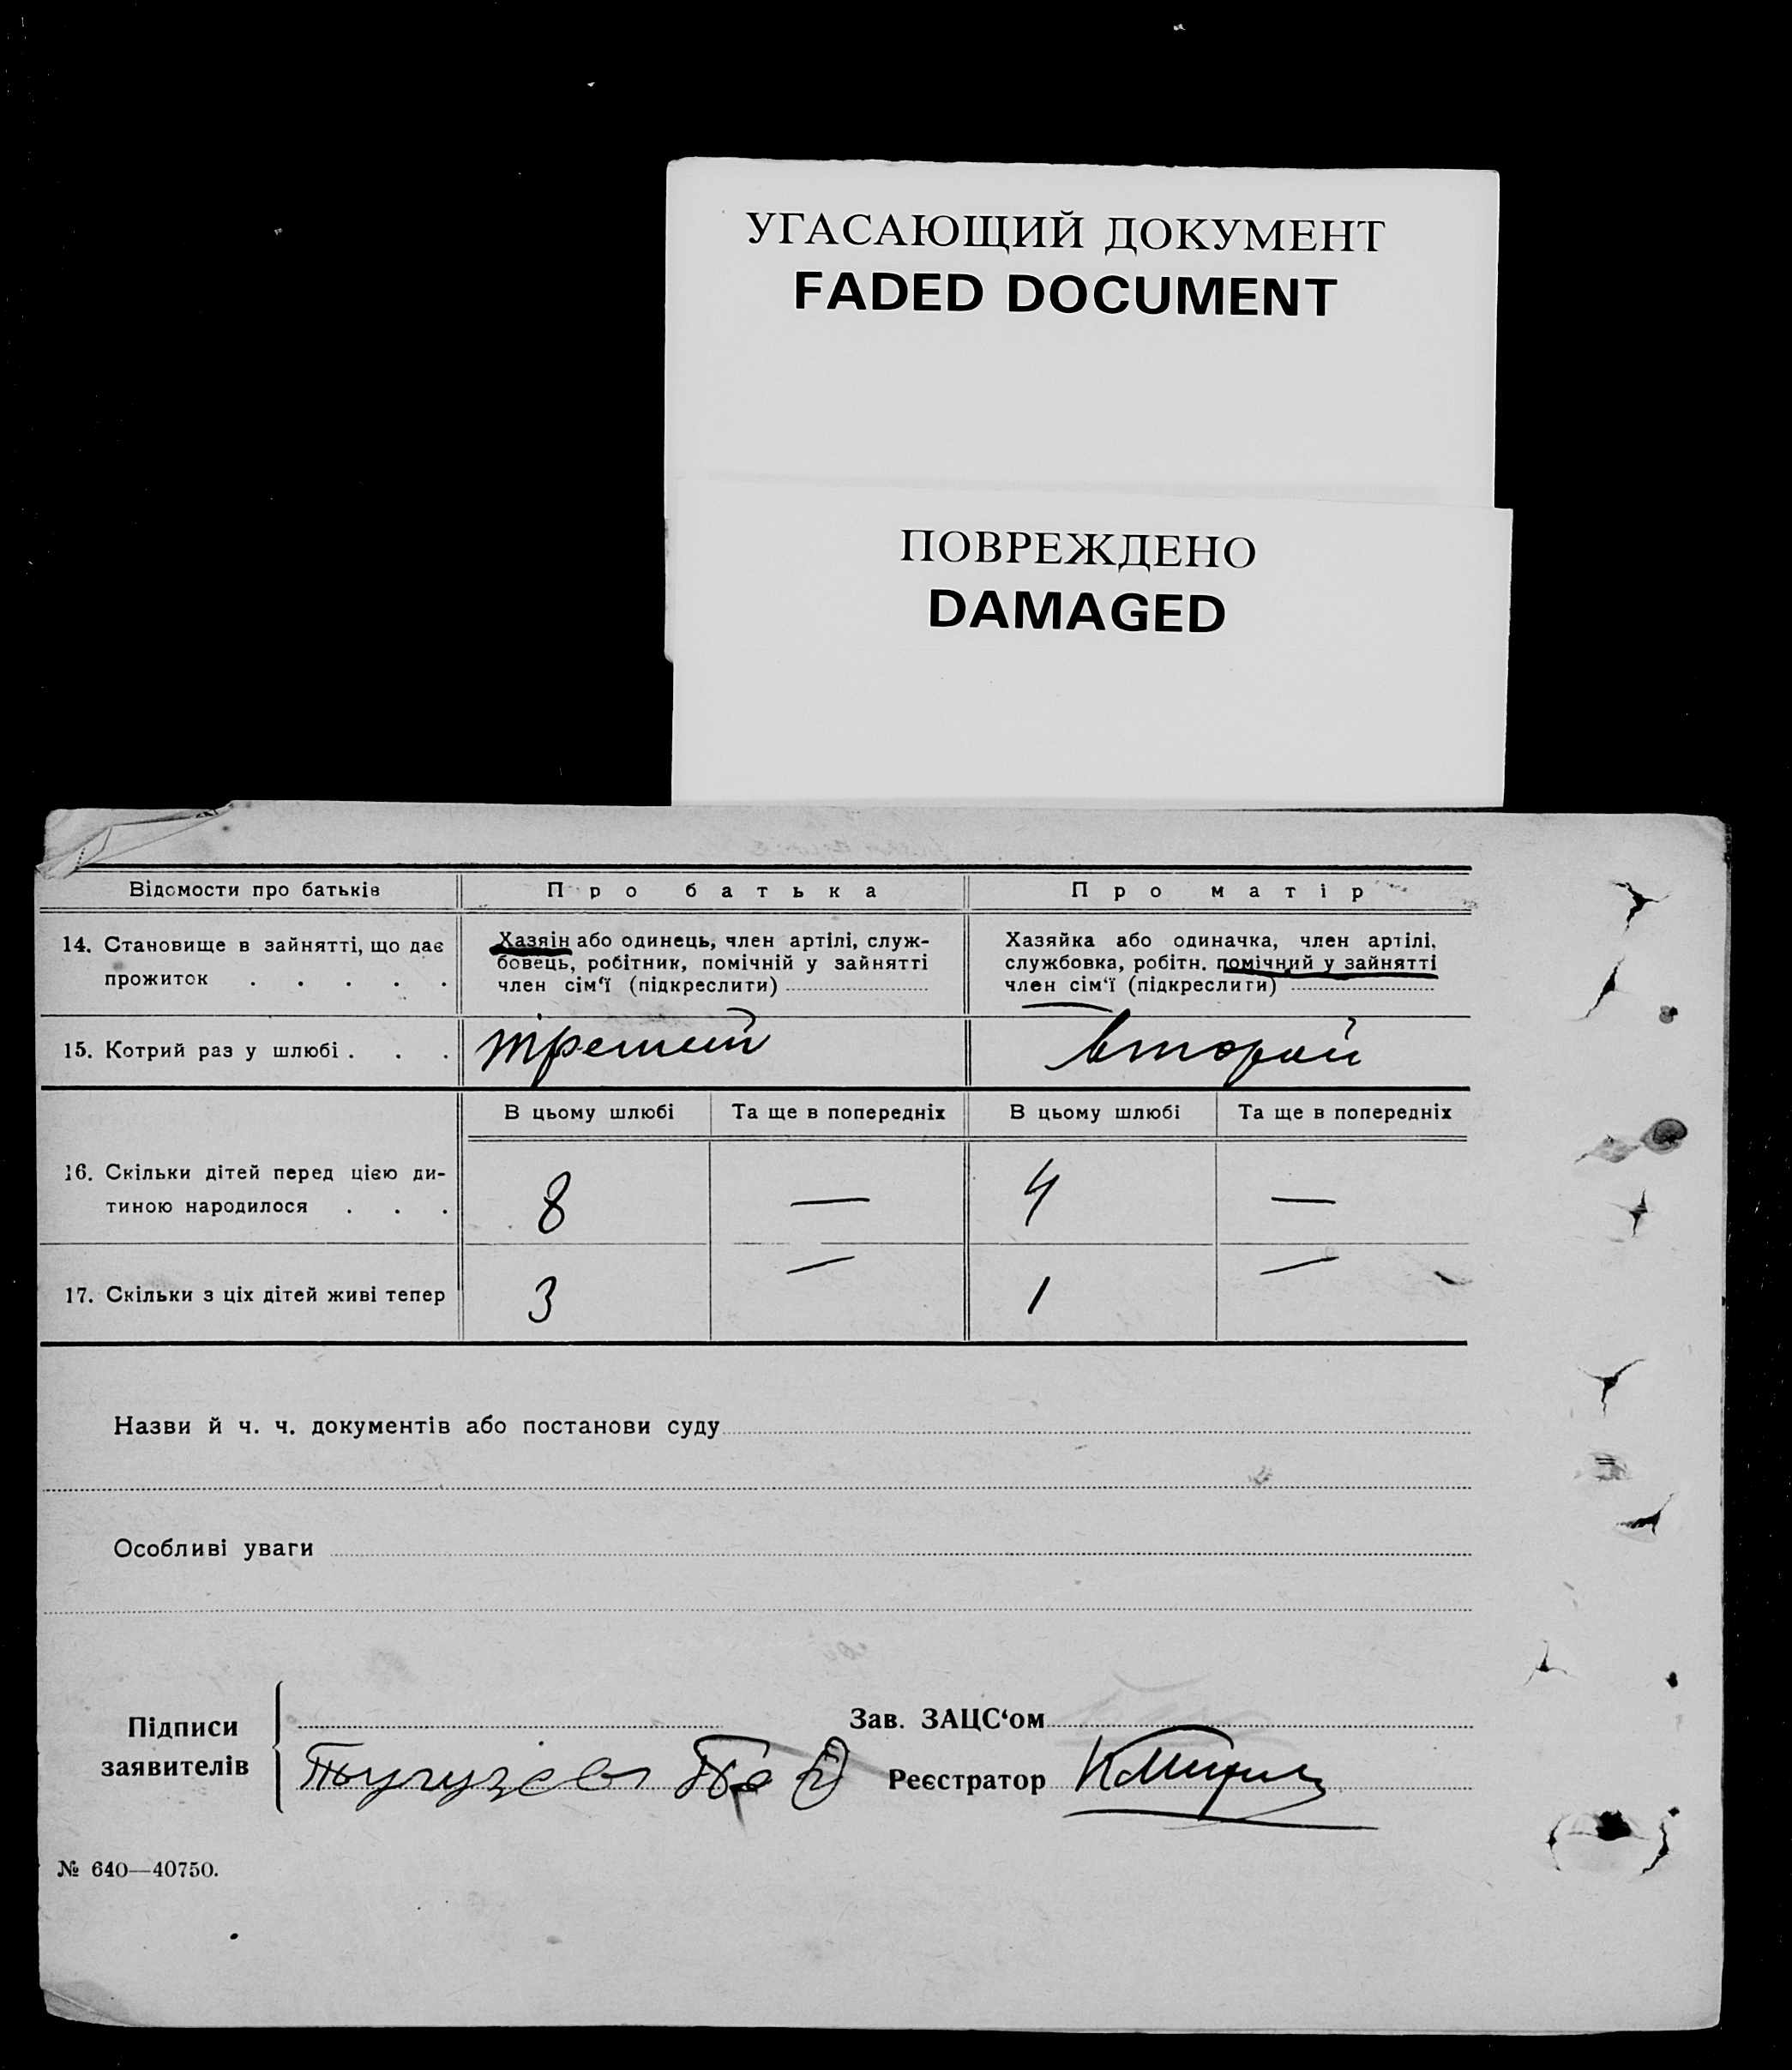 УГАСАЮЩИЙ ДОКУМЕНТ
FADED DOCUMENT
ПОВРЕЖДЕНО
DAMAGED
Відомости про батьків
Про батька
Про матір
14. Становище в зайнятті, що дає
прожиток . . . . .
Хазяін або одинець, член артілі, служ-
бовець, робітник, помічній у зайнятті
член сім'ї (підкреслити)
Хазяйка або одиначка, член артілі,
службовка, робітн. помічний у зайнятті
член сім'ї (підкреслити)
15. Котрий раз у шлюбі . . .
третий
второй
В цьому шлюбі
Та ще в попередніх
В цьому шлюбі
Та ще в попередніх
16. Скільки дітей перед цією ди-
тиною народилося . . .
8
—
4
—
17. Скільки з ціх дітей живі тепер
3
—
1
—
Назви й ч. ч. документів або постанови суду
Особливі уваги
Підписи
заявителів
Зав. ЗАЦС'ом
Реєстратор
№ 640—40750.